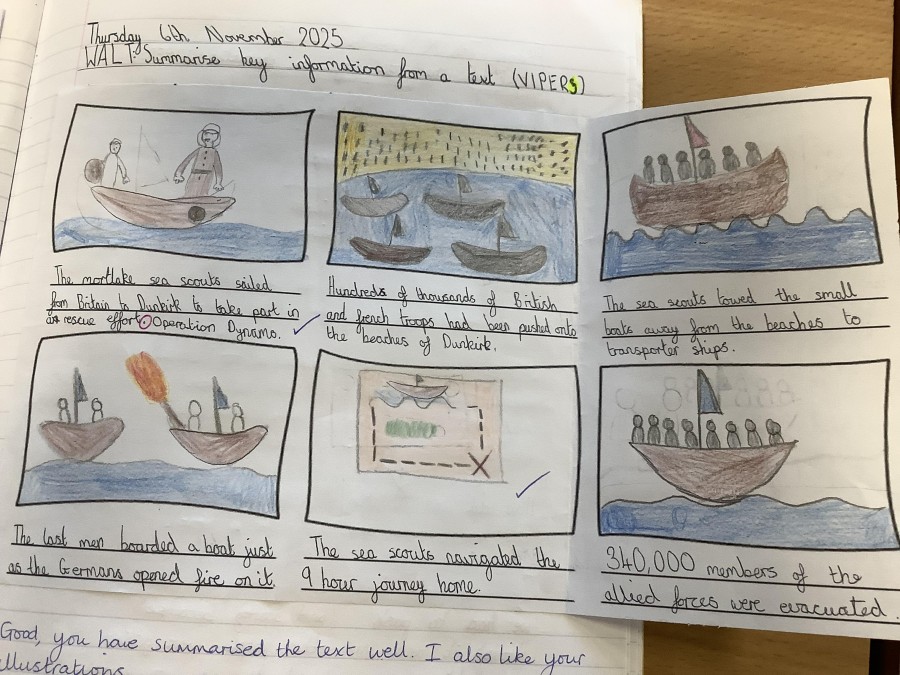 Thursday 6th November 2025
WALT: Summarise key information from a text (VIPERS)
The mortlake sea scouts sailed
from Britain to Dunkirk to take part in
a rescue effort Operation Dynamo.
Hundreds of thousands of British
and french troops had been pushed onto
the beaches of Dunkirk.
The sea scouts towed the small
boats away from the beaches to
transporter ships.
The last men boarded a boat just
as the Germans opened fire on it.
The sea scouts navigated the
9 hour journey home.
340,000 members of the
allied forces were evacuated.
Good, you have summarised the text well. I also like your
illustrations